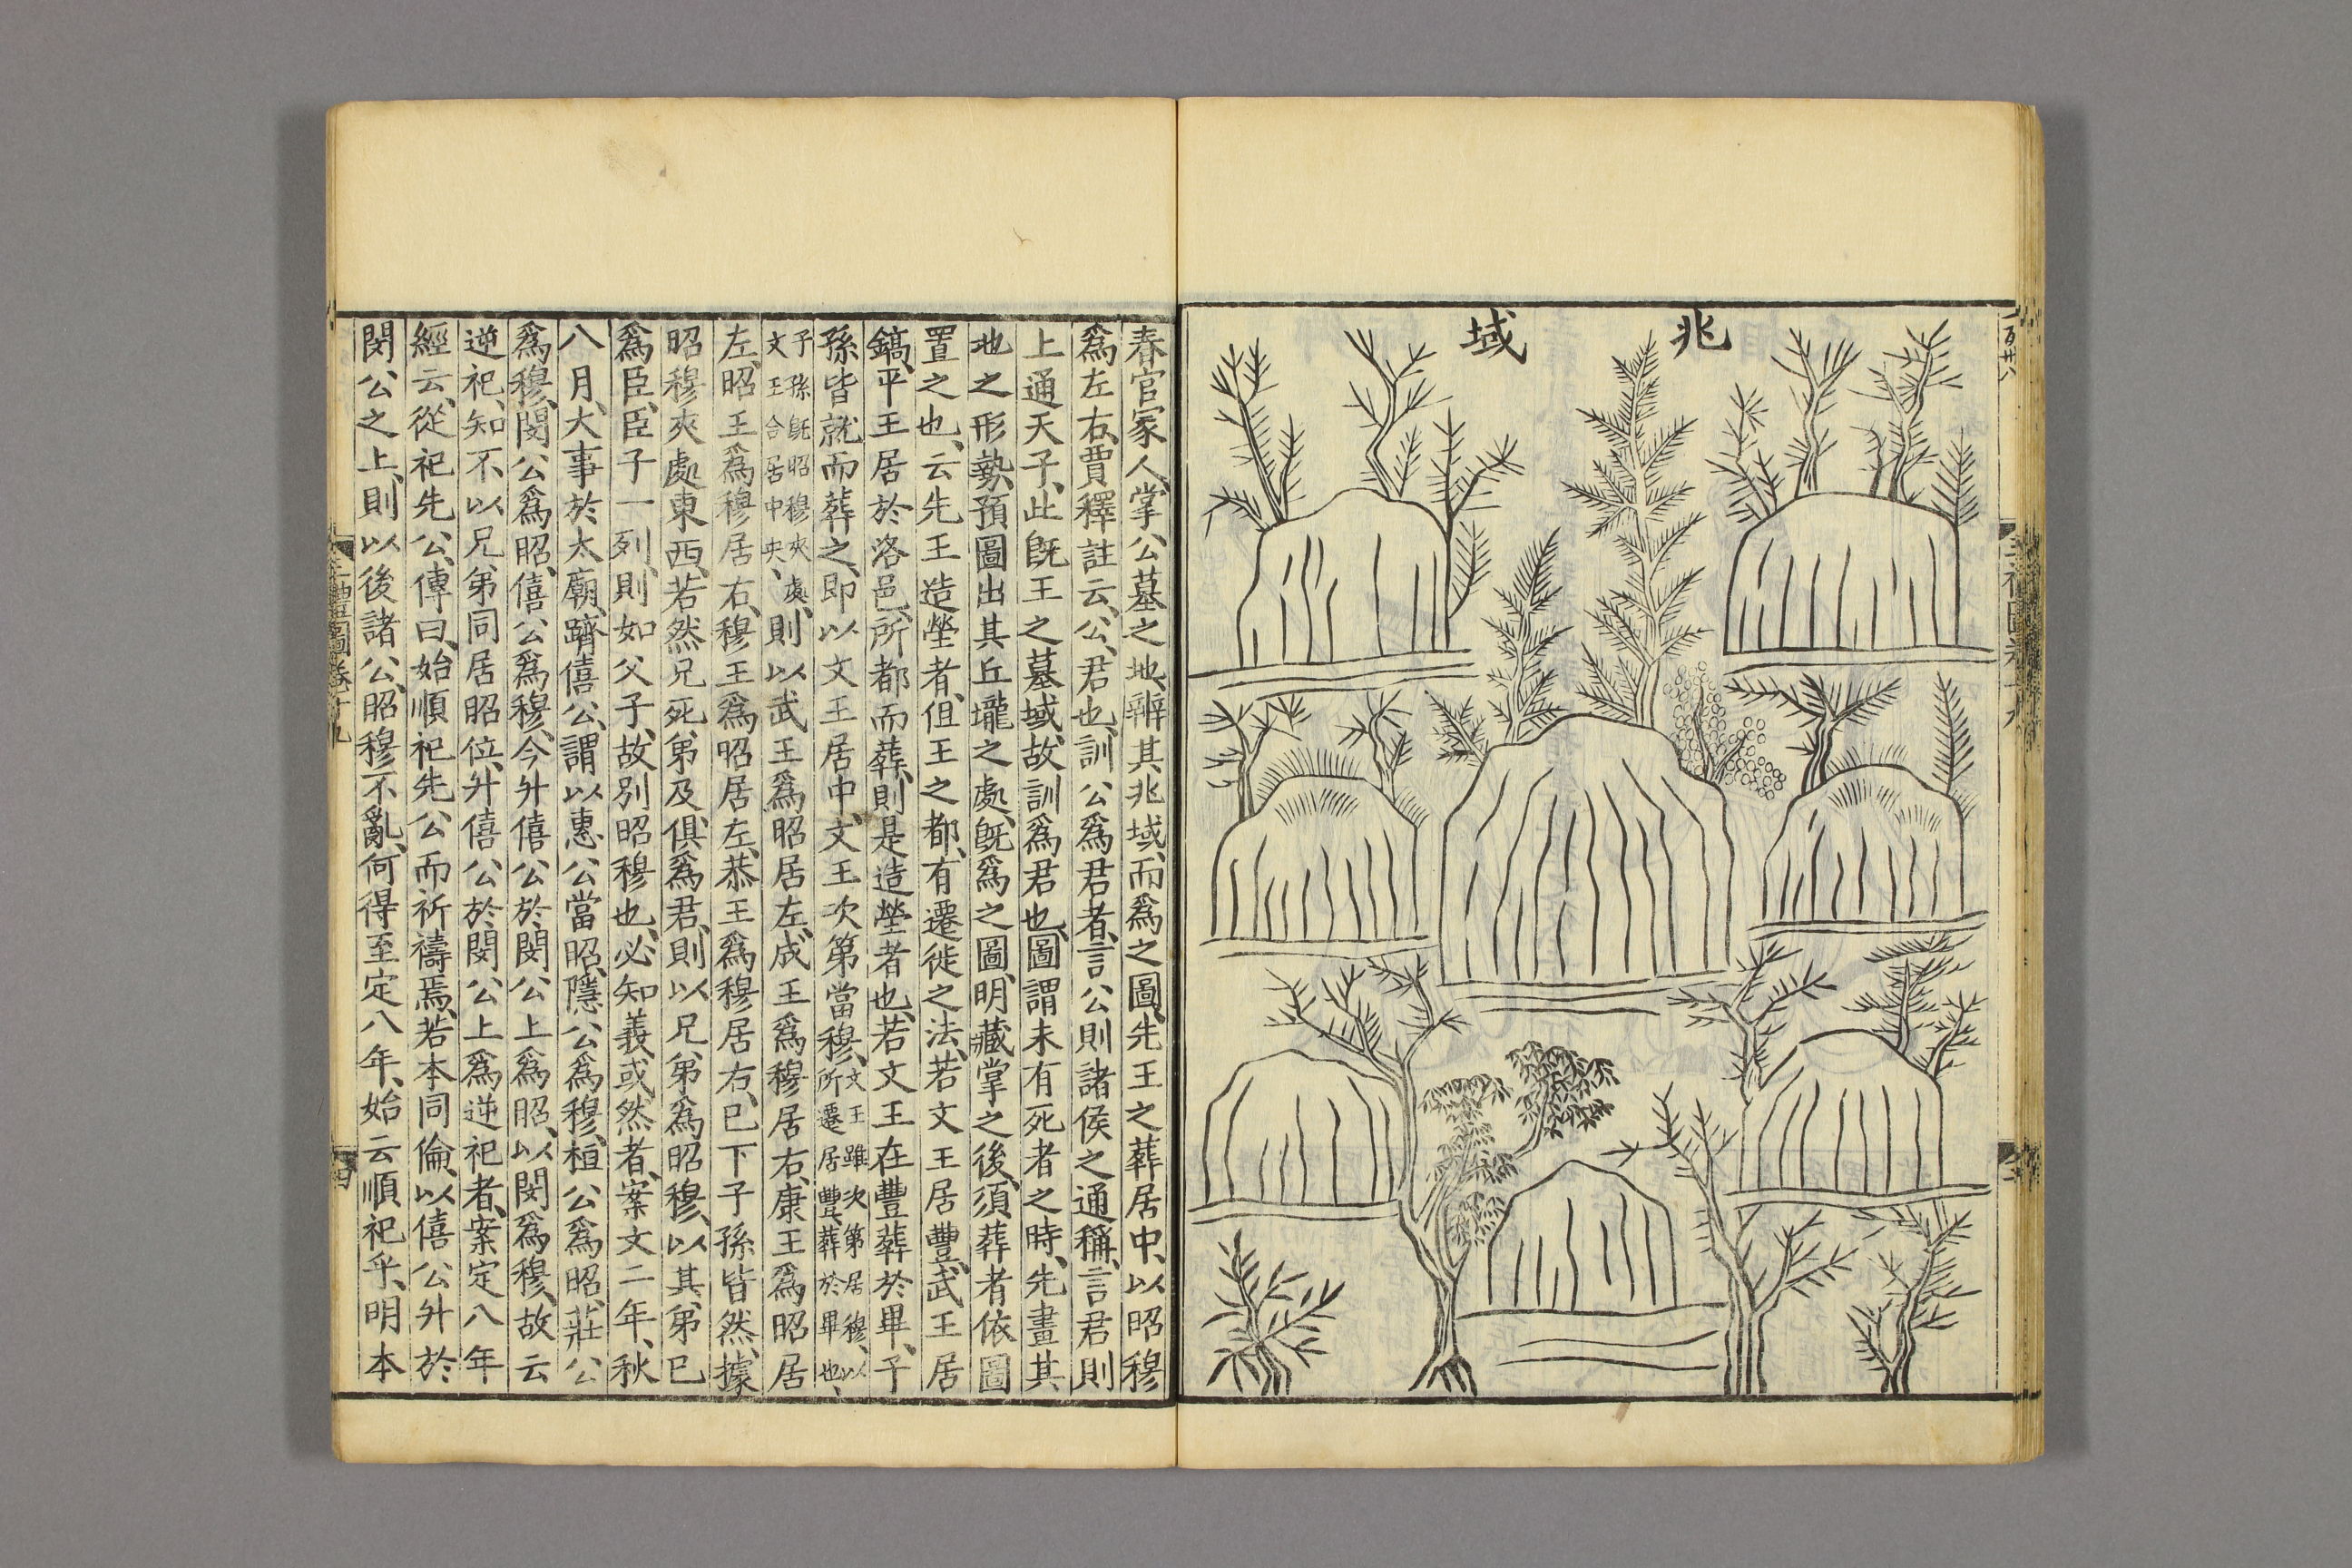 兆域
春官冢人、掌公墓之地、辨其兆域、而爲之圖、先王之葬居中、以昭穆
爲左右、賈釋註云、公、君也、訓公爲君者、言公則諸侯之通稱、言君則
上通天子、此旣王之墓域、故訓爲君也、圖謂未有死者之時、先畫其
地之形勢、預圖出其丘壠之處、旣爲之圖、明藏掌之後、須葬者依圖
置之也、云先王造塋者、但王之都、有遷徙之法、若文王居豐、武王居
鎬、平王居於洛邑、所都而葬、則是造塋者也、若文王在豐葬於畢、子
孫皆就而葬之、即以文王居中、文王次第當穆、文王雖次第居穆、以所遷居豐、葬於畢也、
子孫旣昭穆夾處、文王合居中央、則以武王爲昭居左、成王爲穆居右、康王爲昭居
左、昭王爲穆居右、穆王爲昭居左、恭王爲穆居右、已下子孫皆然、據
昭穆夾處東西、若然兄死、弟及、俱爲君、則以兄弟爲昭穆、以其弟已
爲臣、臣子一列、則如父子、故別昭穆也、必知義或然者、案文二年、秋
八月、大事於太廟、躋僖公、謂以惠公當昭、隱公爲穆、桓公爲昭、莊公
爲穆、閔公爲昭、僖公爲穆、今升僖公於閔公上爲昭、以閔爲穆、故云
逆祀、知不以兄弟同居昭位、升僖公於閔公上爲逆祀者、案定八年
經云、從祀先公、傳曰、始順祀先公而祈禱焉、若本同倫、以僖公升於
閔公之上、則以後諸公、昭穆不亂、何得至定八年、始云順祀乎、明本
三禮圖卷十九
四